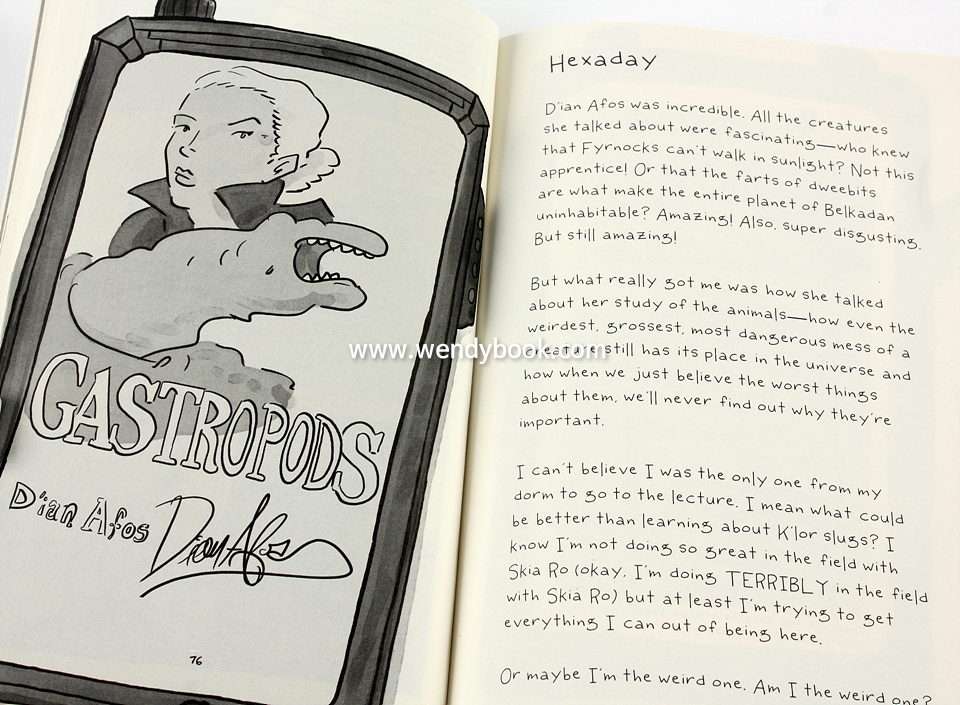 GASTROPODS
D'ian Afos
Dian Afos
76
Hexaday
D'ian Afos was incredible. All the creatures
she talked about were fascinating—who knew
that Fyrnocks can't walk in sunlight? Not this
apprentice! Or that the farts of dweebits
are what make the entire planet of Belkadan
uninhabitable? Amazing! Also, super disgusting.
But still amazing!
But what really got me was how she talked
about her study of the animals—how even the
weirdest, grossest, most dangerous mess of a
creature still has its place in the universe and
how when we just believe the worst things
about them, we'll never find out why they're
important.
I can't believe I was the only one from my
dorm to go to the lecture. I mean what could
be better than learning about K'lor slugs? I
know I'm not doing so great in the field with
Skia Ro (okay, I'm doing TERRIBLY in the field
with Skia Ro) but at least I'm trying to get
everything I can out of being here.
Or maybe I'm the weird one. Am I the weird one?
www.wendybook.com